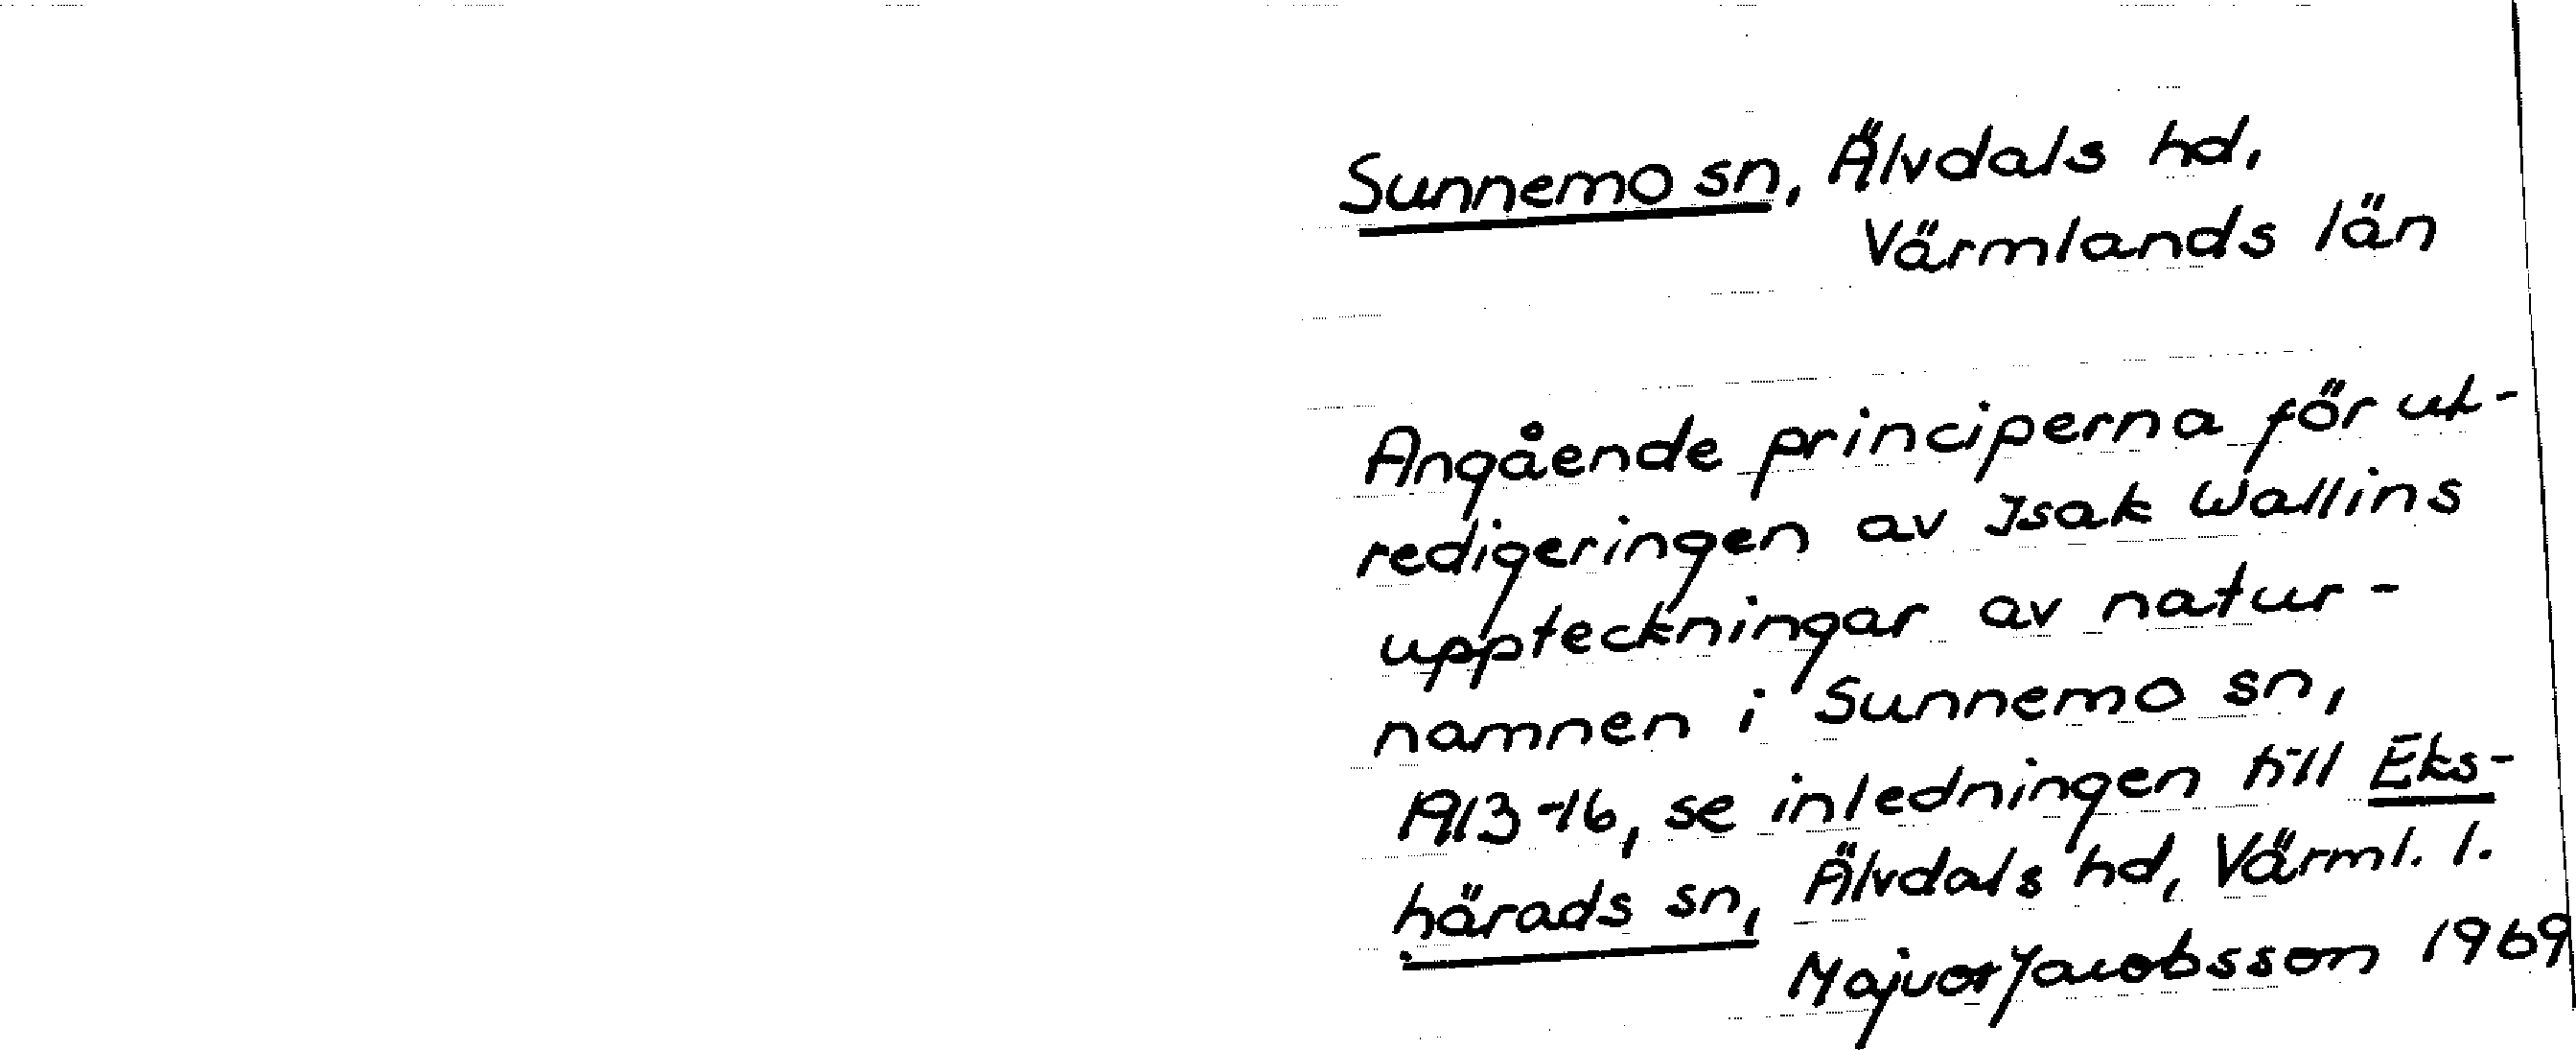 Sunnemo sn, Älvdals hd,
Värmlands län
Angående principerna för ut-
redigeringen av Isak Wallins
uppteckningar av natur-
namnen i Sunnemo sn,
1913-16, se inledningen till Eks-
härads sn, Älvdals hd, Värml. l.
Majvor Jacobsson 1969